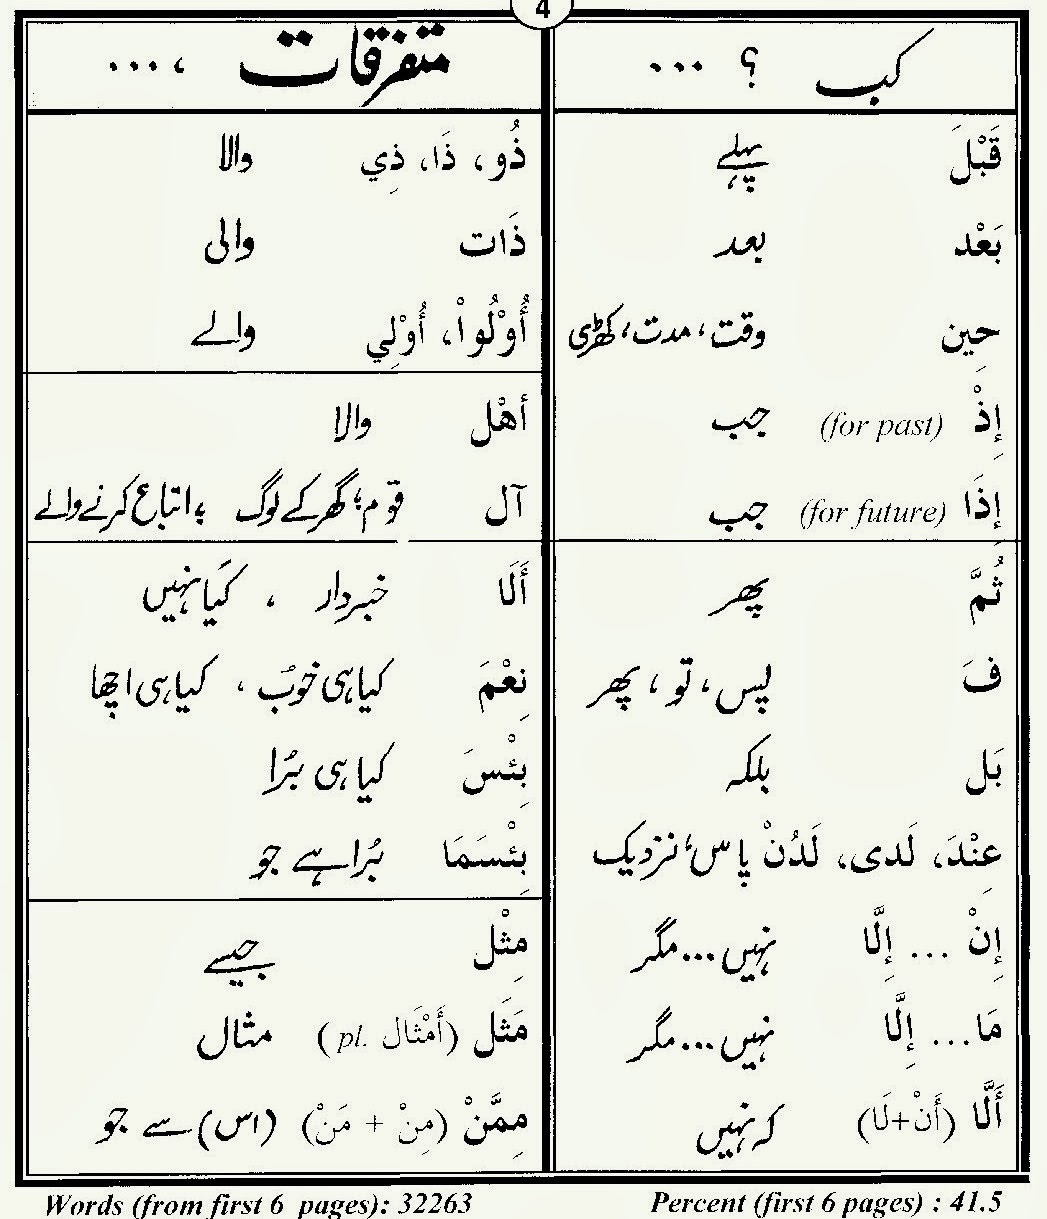 4
کب ؟ ...
قَبْلَ پہلے
بَعْد بعد
حِين وقت، مدت، گھڑی
إِذْ (for past) جب
إِذَا (for future) جب
ثُمَّ پھر
فَ پس، تو، پھر
بَل بلکہ
عِنْدَ، لَدى، لَدُنْ پاس، نزدیک
إِنْ ... إِلَّا نہیں...مگر
مَا... إِلَّا نہیں...مگر
أَلَّا (أَنْ+لَا) کہ نہیں
متفرقات ، ...
ذُو، ذَا، ذِي والا
ذَات والی
أُوْلُواْ، أُوْلِي والے
أهْل والا
آل قوم؛ گھر کے لوگ ؛ اتباع کرنے والے
أَلَا خبردار ، کیا نہیں
نِعْمَ کیا ہی خوب ، کیا ہی اچھا
بِئْسَ کیا ہی بُرا
بِئْسَمَا بُرا ہے جو
مِثْل جیسے
مَثَل (أَمْثَال pl.) مثال
مِمَّنْ (مِنْ + مَنْ) (اس) سے جو
Words (from first 6 pages): 32263
Percent (first 6 pages) : 41.5